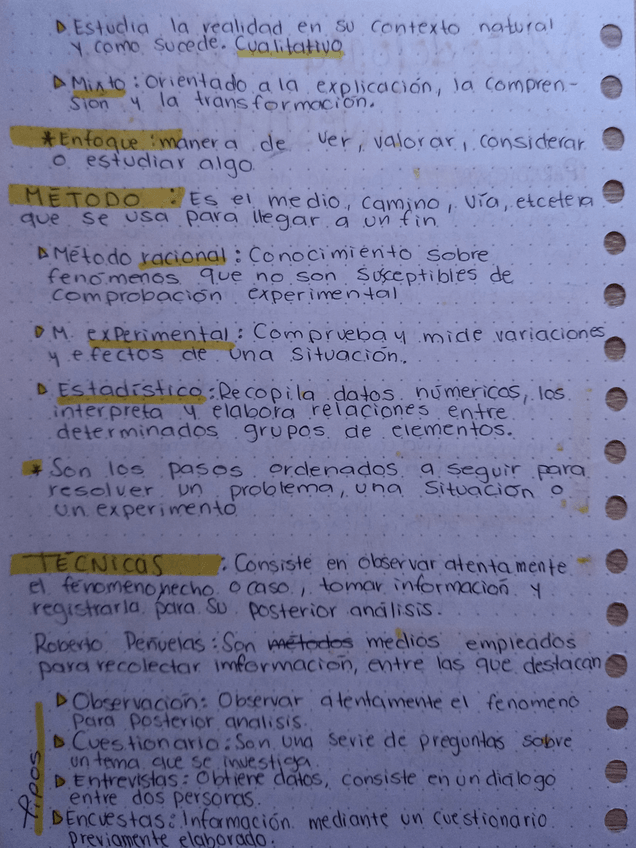 ▷ Estudia la realidad en su contexto natural
y como sucede. Cualitativo
▷ Mixto : Orientado a la explicación, la compren-
sion y la transformación.
*Enfoque : manera de ver, valorar, considerar
o estudiar algo
MÉTODO : Es el medio, camino, vía, etcetera
que se usa para llegar a un fin
▷ Método racional : Conocimiento sobre
fenómenos que no son susceptibles de
comprobación experimental
▷ M. experimental : Comprueba y mide variaciones
y efectos de una situación.
▷ Estadístico : Recopila datos númericos, los
interpreta y elabora relaciones entre
determinados grupos de elementos.
* Son los pasos ordenados a seguir para
resolver un problema, una situación o
un experimento
TÉCNICAS : Consiste en observar atentamente
el fenomeno, hecho o caso, tomar información y
registrarla para su posterior análisis.
Roberto Peñuelas : Son métodos medios empleados
para recolectar imformación, entre las que destacan
Tipos
▷ Observación : Observar atentamente el fenomeno
para posterior analisis.
▷ Cuestionario : Son una serie de preguntas sobre
un tema que se investiga
▷ Entrevistas : Obtiene datos, consiste en un dialogo
entre dos personas.
▷ Encuestas : Información mediante un cuestionario
previamente elaborado.